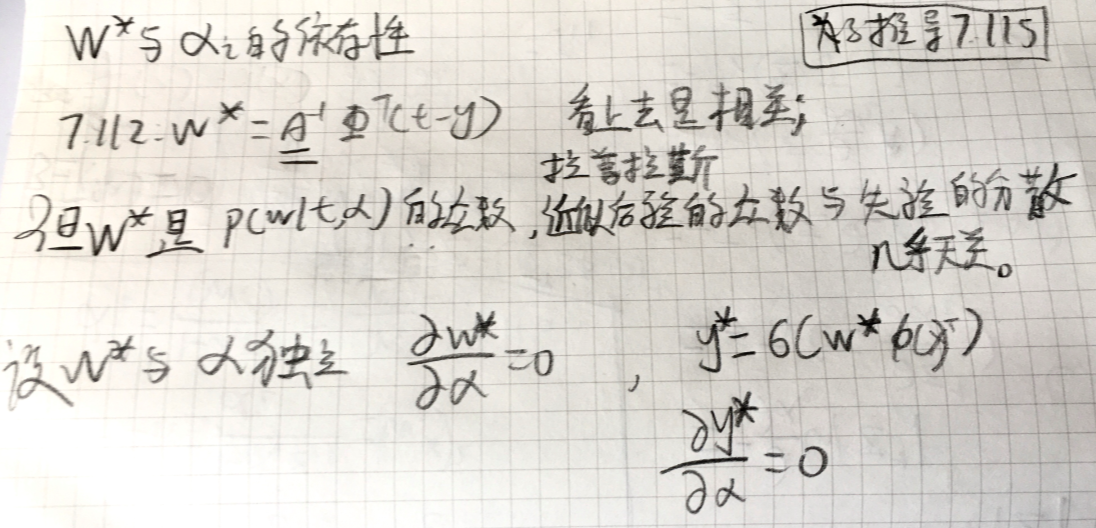 W*与αi的依存性
为了推导7.115
7.112:W* = A⁻¹Φᵀ(t-y) 看上去是相关;
拉普拉斯
但W*是 p(w|t,α)的众数,近似后验的众数与先验的分散
几乎无关。
设W*与α独立 ∂W*/∂α=0 , y*=6(W*ϕ(x)ᵀ)
∂y*/∂α = 0